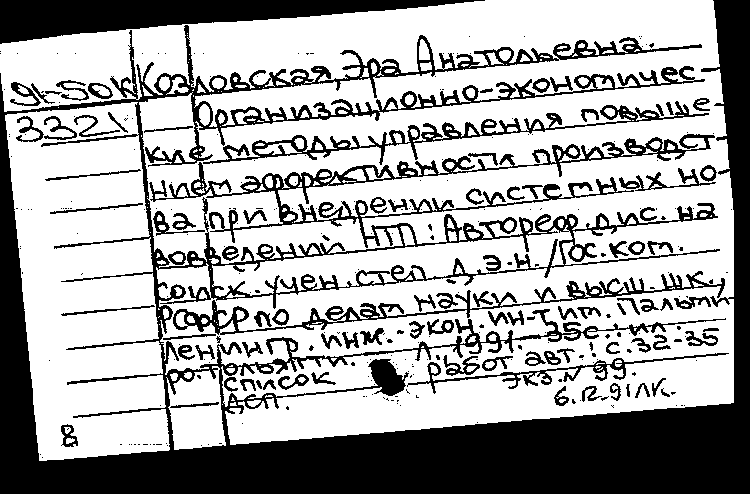 91-50к Козловская, Эра Анатольевна.
3321 Организационно-экономичес-
кие методы управления повыше-
нием эффективности производст-
ва при внедрении системных но-
вовведений НТП: Автореф. дис. на
соиск. учен. степ. д.э.н. / Гос. ком.
РСФСР по делам науки и высш. шк.,
Ленингр. инж.-экон. ин-т им. Пальми-
ро Тольятти. Л., 1991.-35с.: ил.
список работ авт.: с. 32-35
дсп. экз. N 99.
6.12.91 ЛК.
8